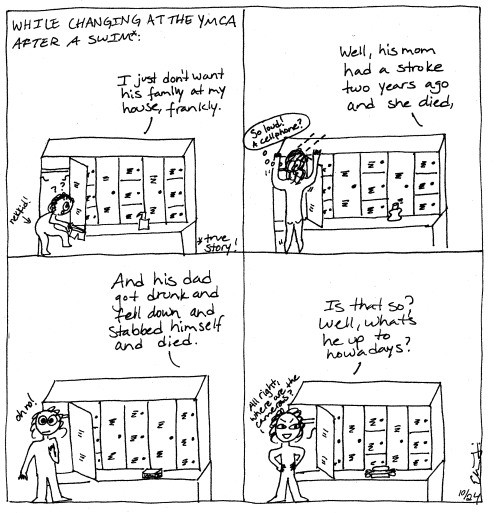 WHILE CHANGING AT THE YMCA
AFTER A SWIM*:
I just don't want
his family at my
house, frankly.
nekkid!
? ?
*true
story!
Well, his mom
had a stroke
two years ago
and she died,
So loud!
A cellphone?
And his dad
got drunk and
fell down and
stabbed himself
and died.
oh no!
Is that so?
Well, what's
he up to
nowadays?
All right,
where are the
cameras?
10/24